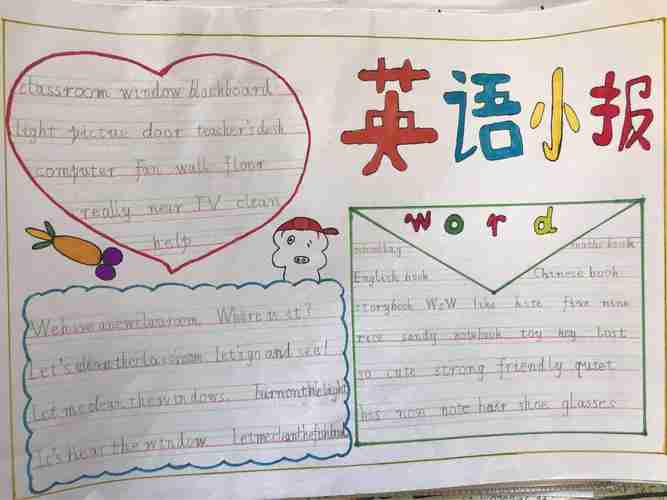 英语小报
classroom window blackboard
light pictue door teacher's desk
computer fan wall floor
really near TV clean
help
word
schoolbag maths book
English book Chinese book
storybook WoW like kite five nine
rice candy notebook toy key lost
so cute strong friendly quiet
his non note hair shoe glasses
We have a new classroom. Where is it?
Let's clean the classroom. Let's go and see!
Let me clean the windows. Turn on the light
It's near the window. Let me clean the fishbowl